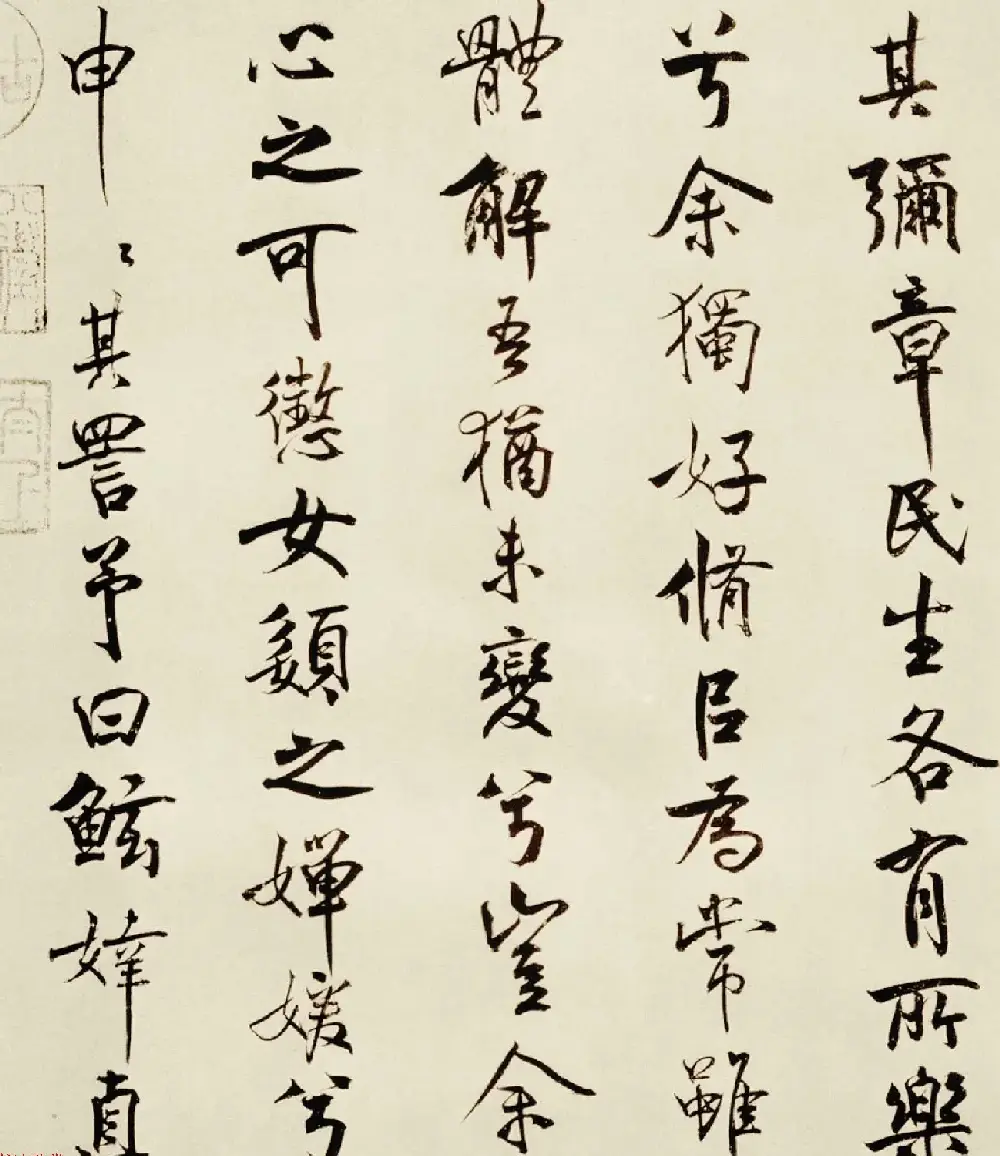 其彌章民生各有所樂
兮余獨好脩㠯為常雖
體解吾猶未變兮豈余
心之可懲女顏之嬋媛兮
申〻其詈予曰鮌婞直